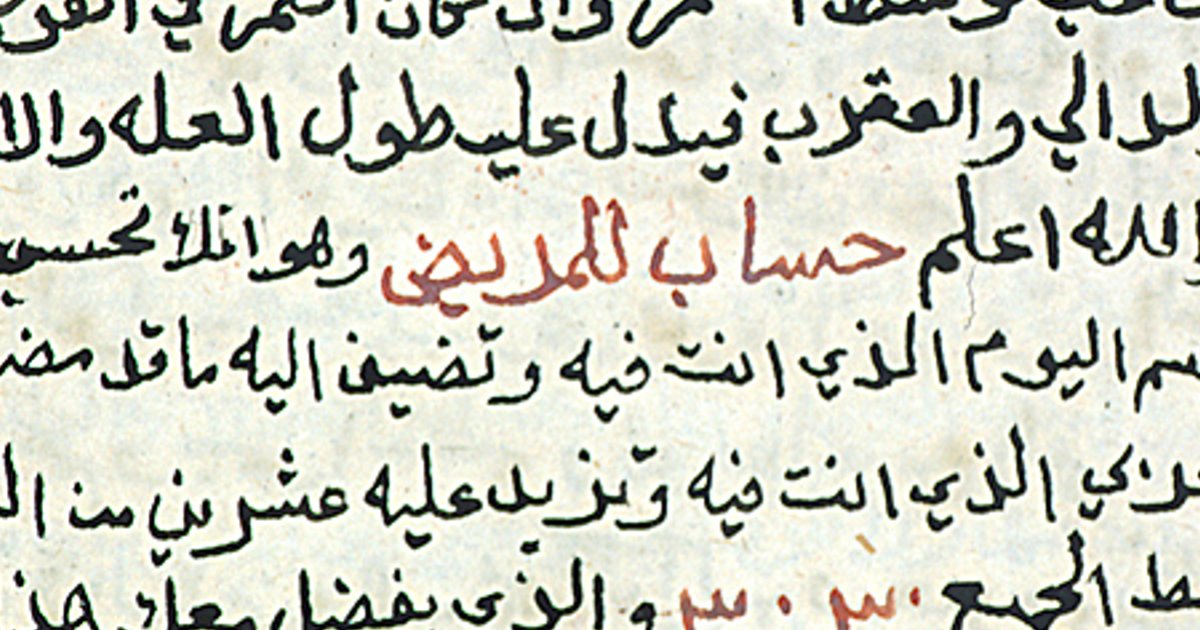 وسط القمر وان كان القمر في القوس
الدالي والعقرب فيدل علي طول العله والا
والله اعلم حساب للمريض وهو انك تحسب
اسم اليوم الذي انت فيه وتضيف اليه ما قد مضي
الذي انت فيه وتزيد عليه عشرين من
الجميع ٣٠ ٣٠ والذي يفضل معك